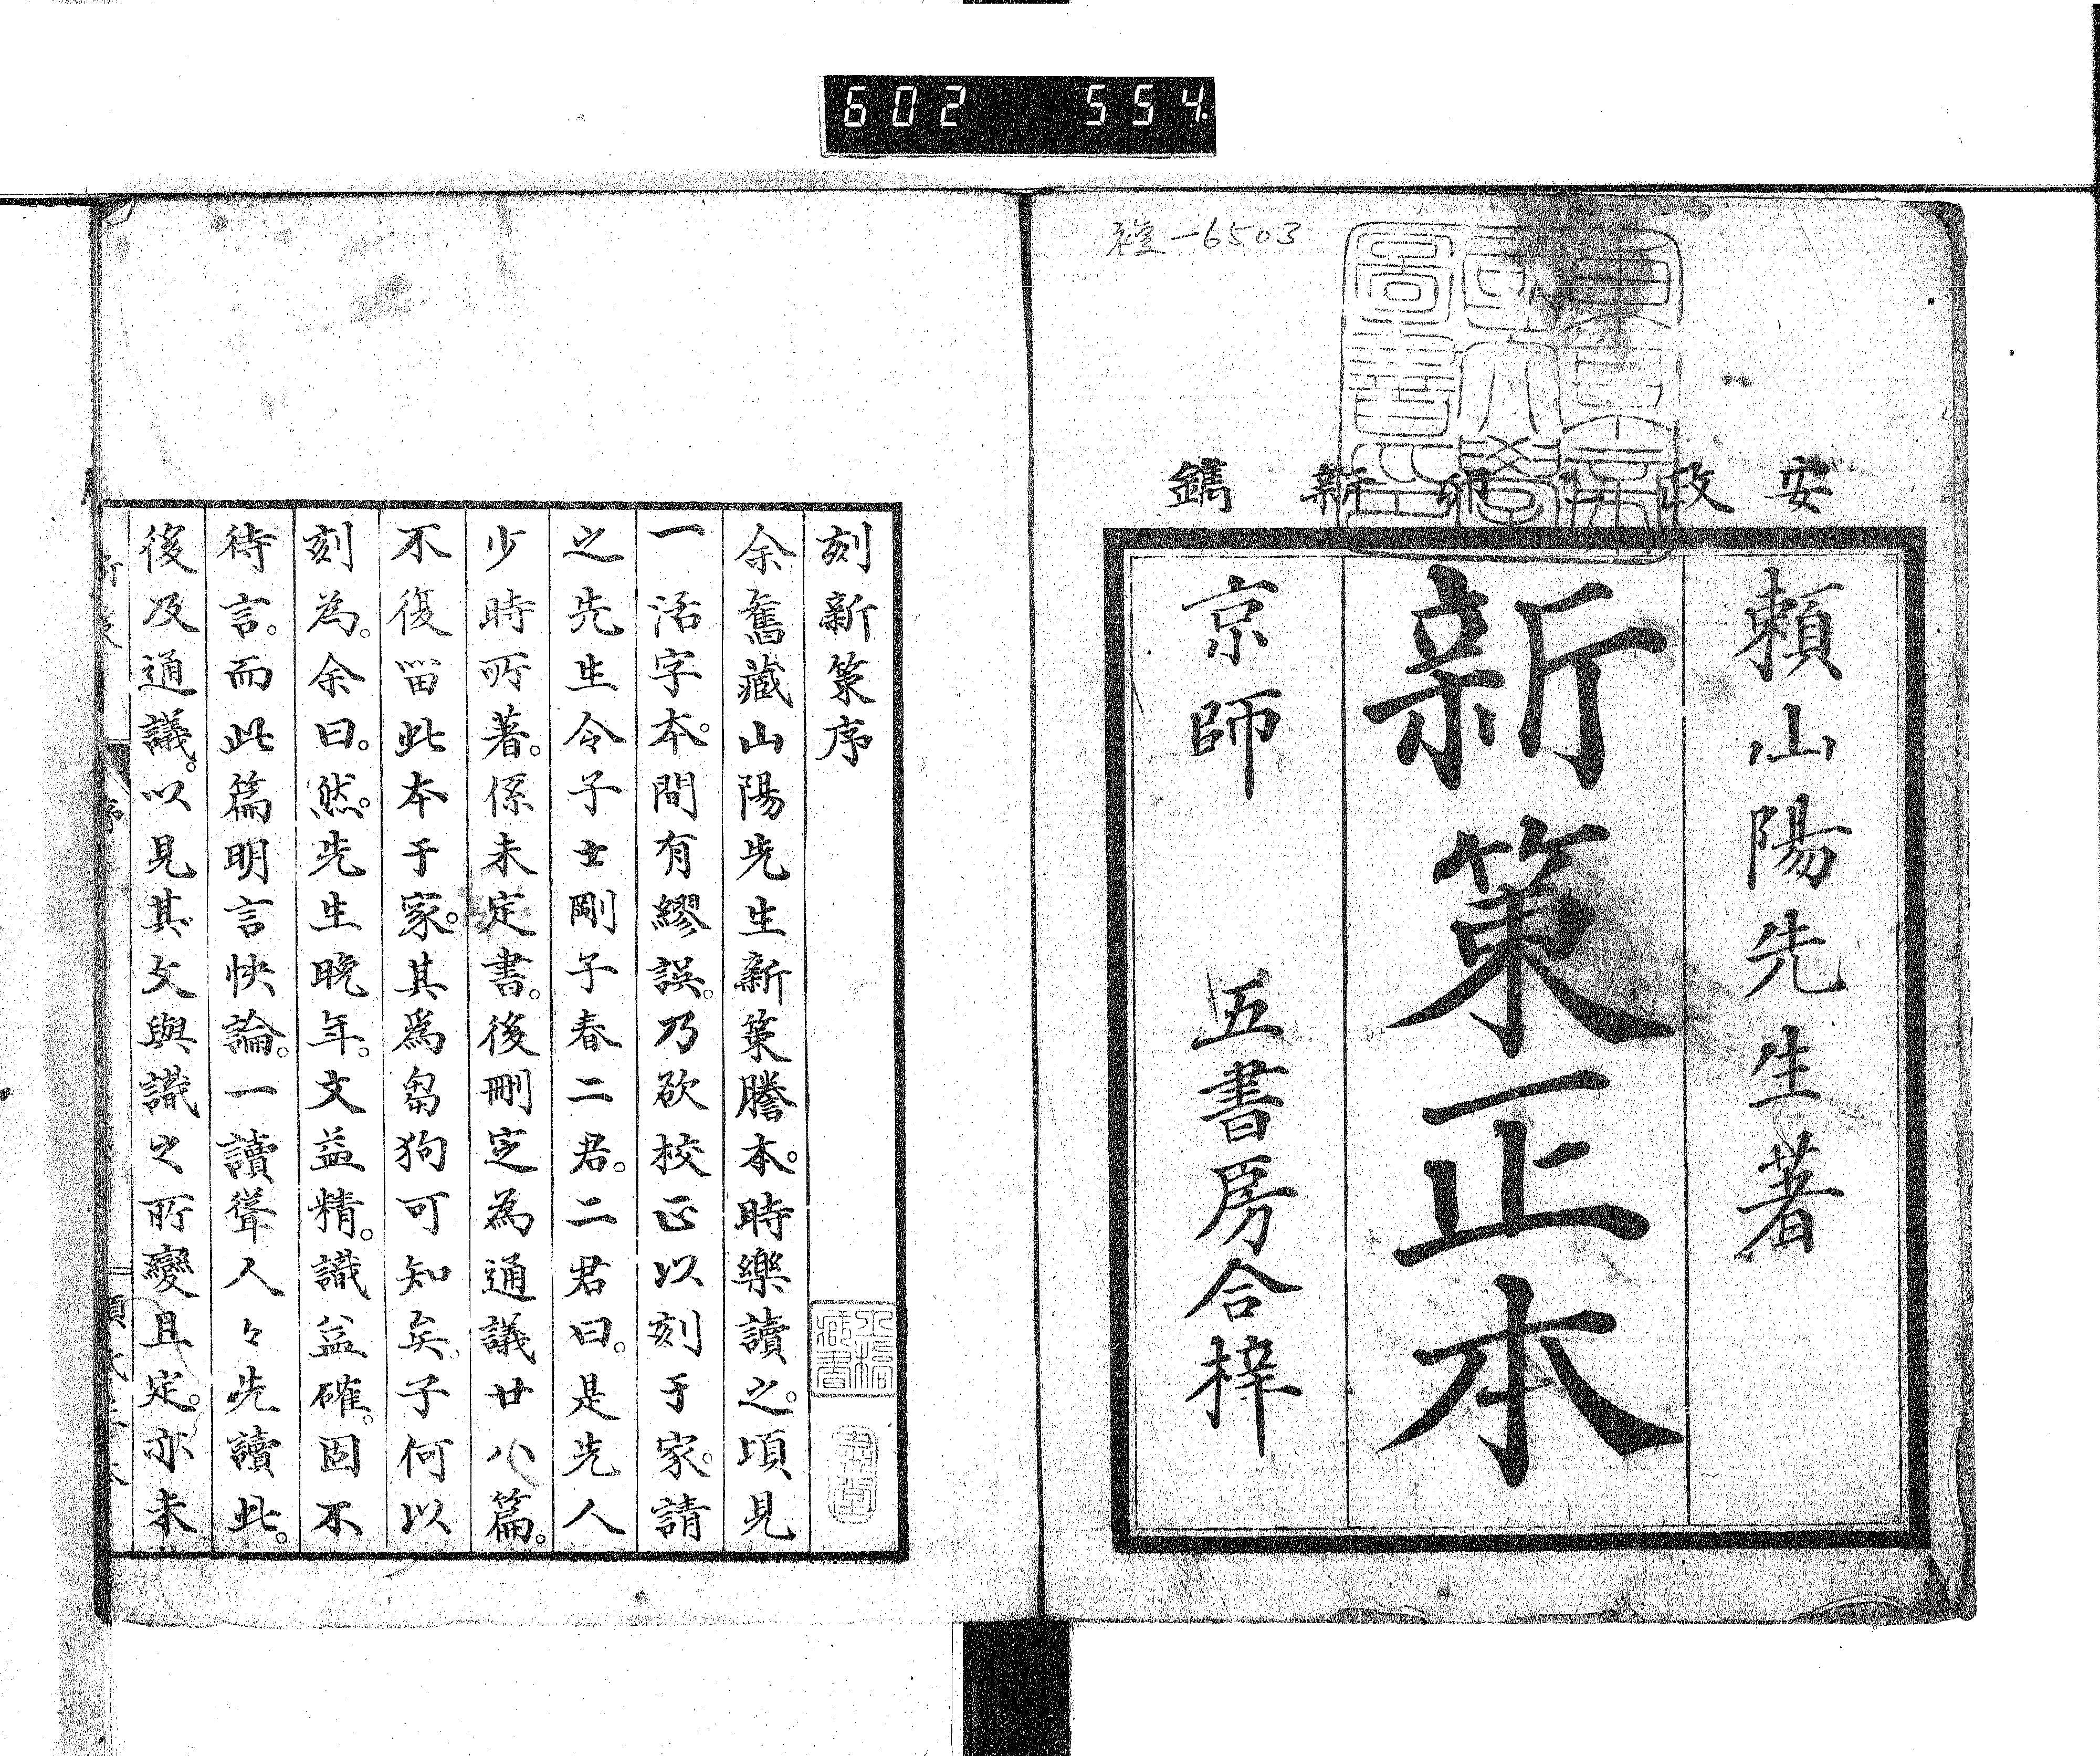 602 554
複-6503
安政乙卯新鐫
賴山陽先生著
新策正本
京師 五書房合梓
刻新策序
余舊藏山陽先生新策謄本。時樂讀之。頃見
一活字本。間有繆誤。乃欲校正以刻于家。請
之先生令子士剛子春二君。二君曰。是先人
少時所著。係未定書。後刪定為通議廿八篇。
不復留此本于家。其爲芻狗可知矣。子何以
刻為。余曰。然。先生晚年。文益精。識益確。固不
待言。而此篇明言快論。一讀聳人々先讀此。
後及通議。以見其文與識之所變且定。亦未